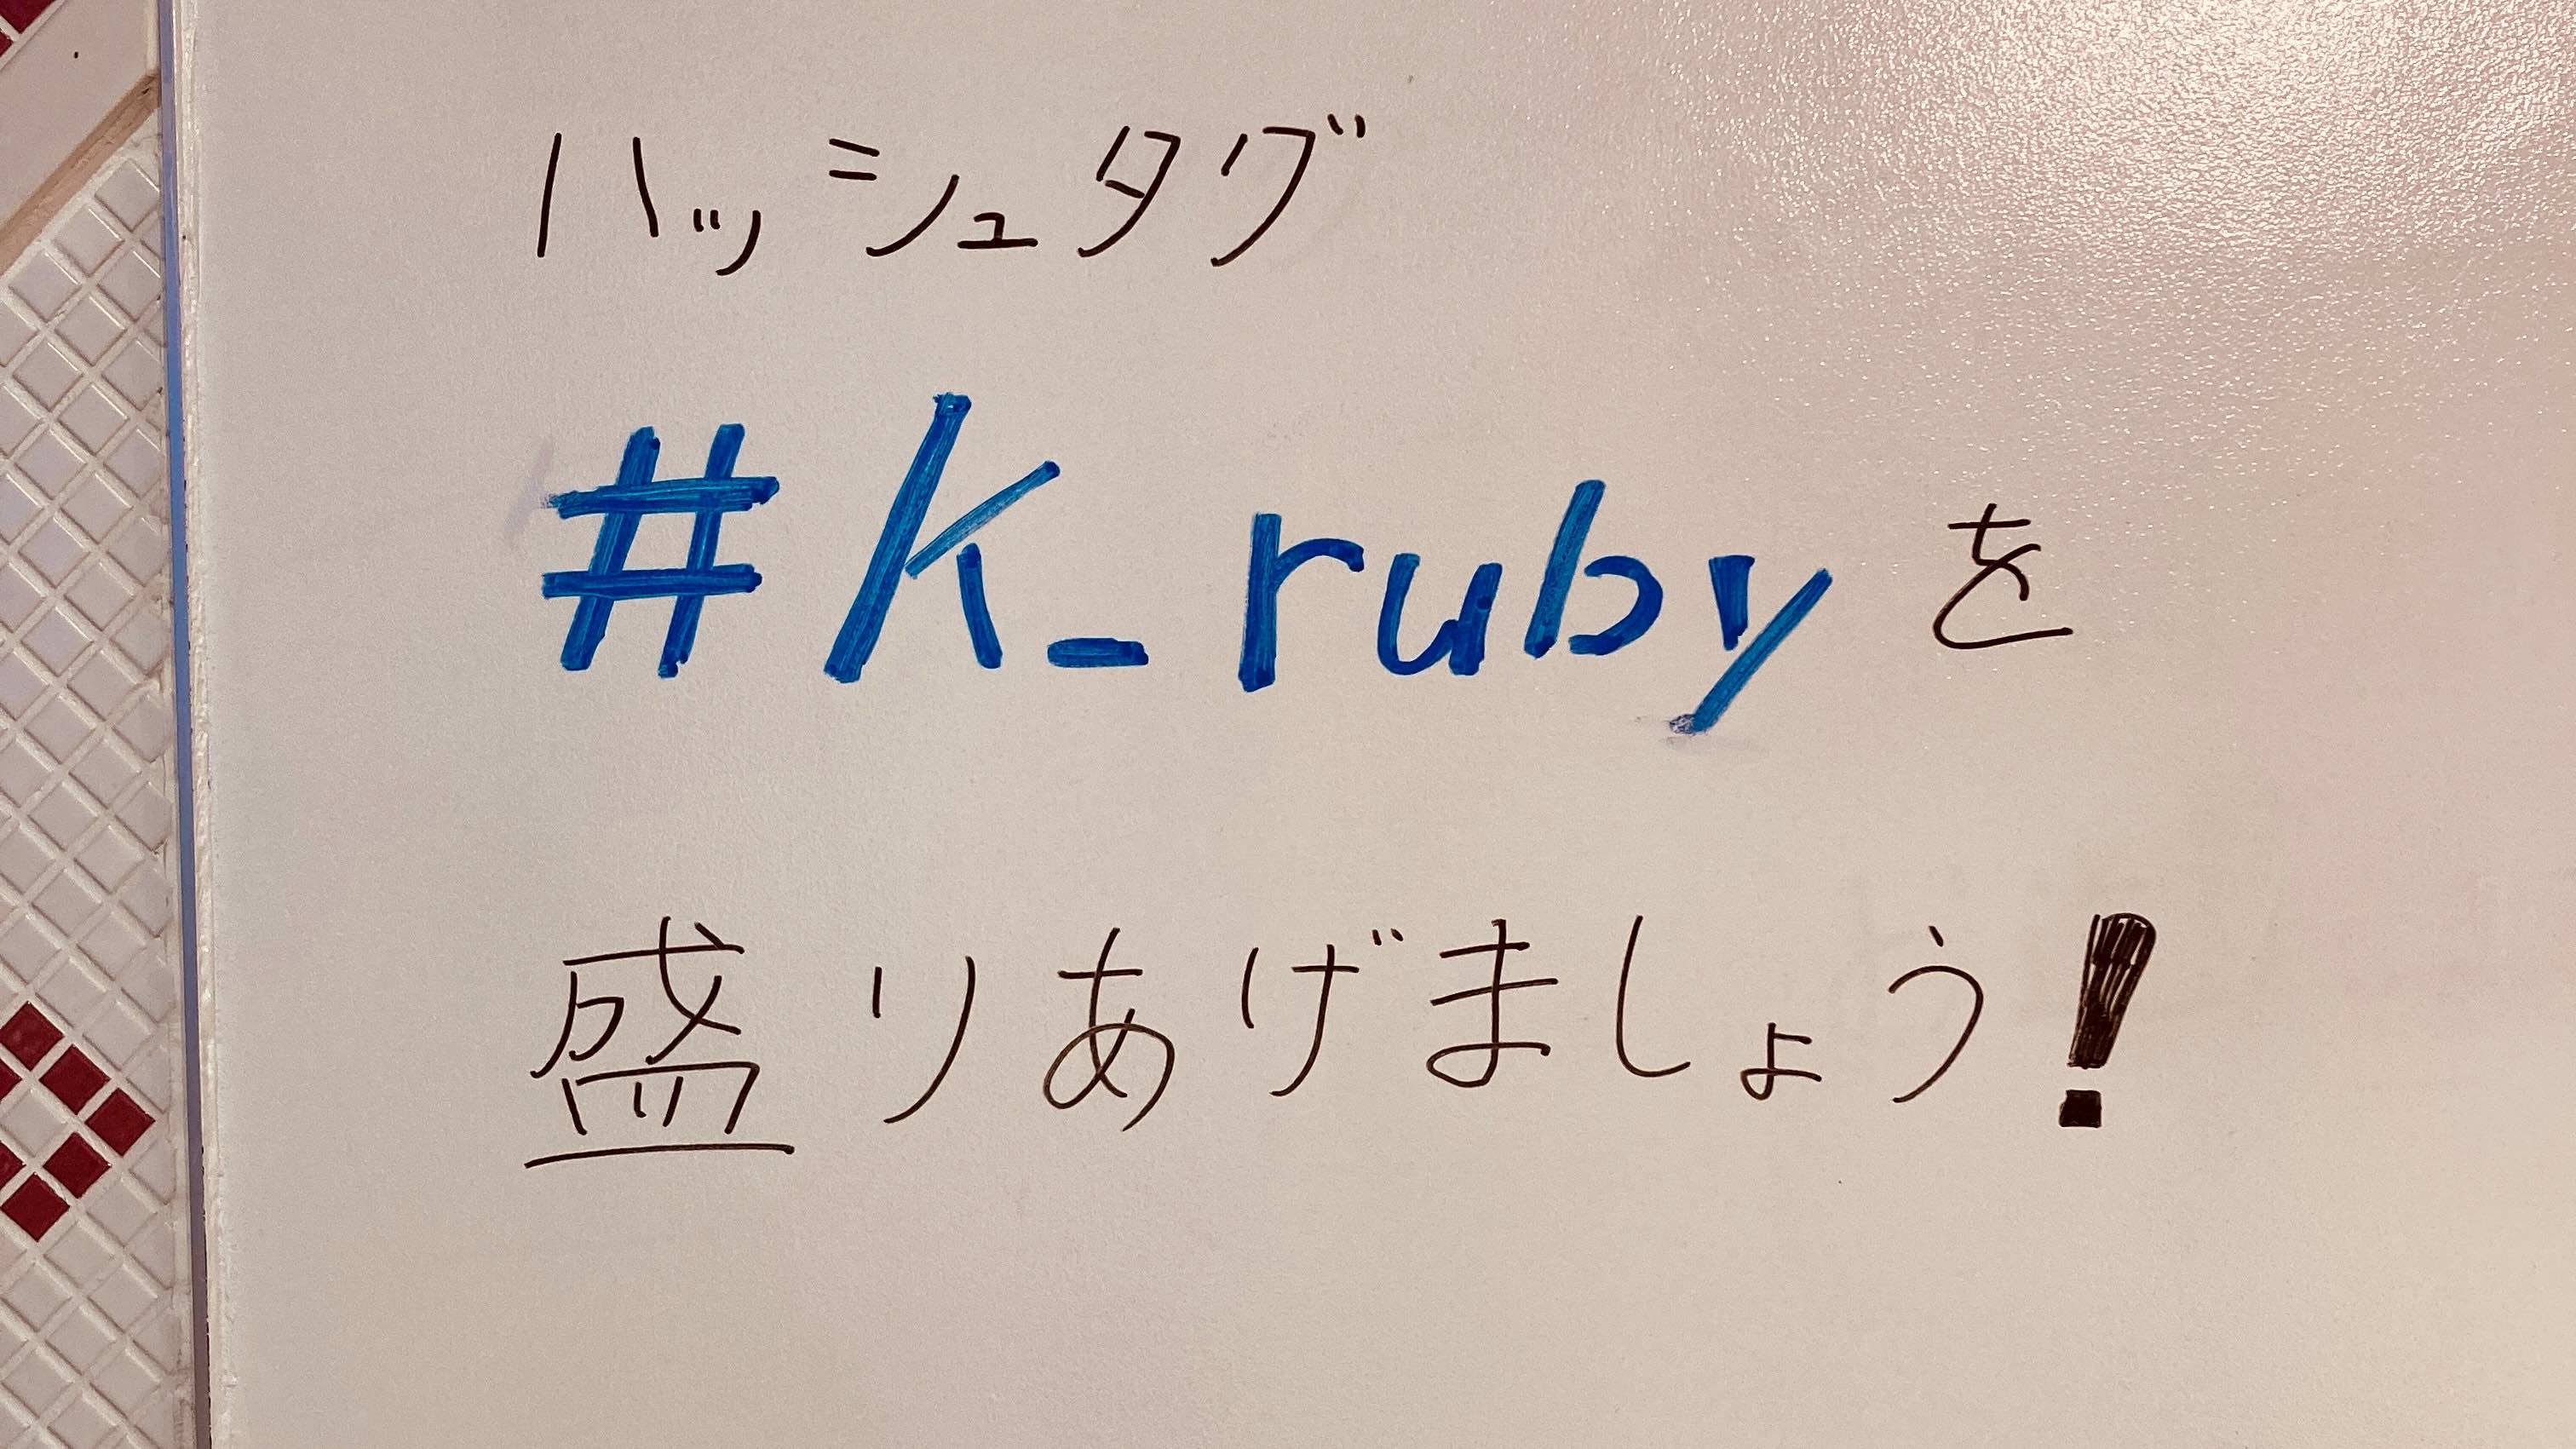 ハッシュタグ
#k_rubyを
盛りあげましょう!